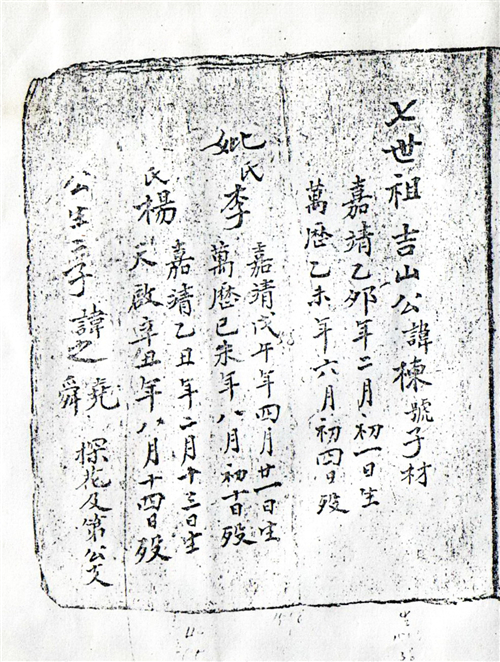 七世祖吉山公諱棟號子材
嘉靖乙卯年二月初一日生
萬歷乙未年六月初四日歿
妣氏李
嘉靖戊午年四月廿一日生
萬歷己未年八月初十日歿
氏楊
嘉靖乙丑年二月十三日生
天啟辛丑年八月十四日歿
公生二子諱之堯舜探花及第公父